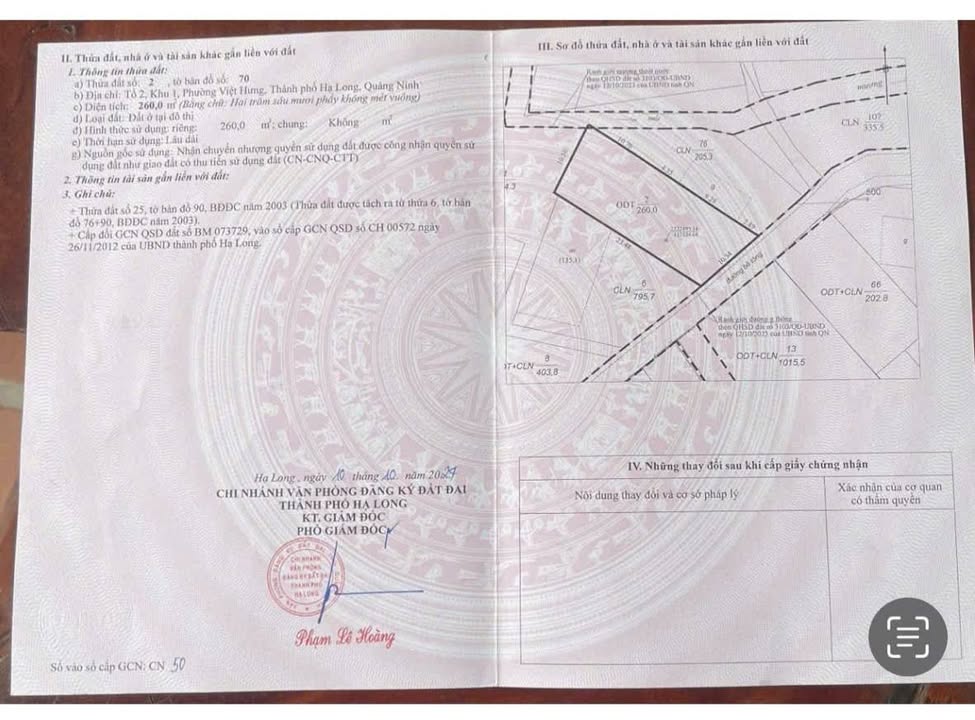 II. Thửa đất, nhà ở và tài sản khác gắn liền với đất
1. Thông tin thửa đất:
a) Thửa đất số: 2 , tờ bản đồ số: 70
b) Địa chỉ: Tổ 2, Khu 1, Phường Việt Hưng, Thành phố Hạ Long, Quảng Ninh
c) Diện tích: 260,0 m² (Bằng chữ: Hai trăm sáu mươi phẩy không mét vuông)
d) Loại đất: Đất ở tại đô thị
đ) Hình thức sử dụng: riêng: 260,0 m²; chung: Không m²
e) Thời hạn sử dụng: Lâu dài
g) Nguồn gốc sử dụng: Nhận chuyển nhượng quyền sử dụng đất được công nhận quyền sử
dụng đất như giao đất có thu tiền sử dụng đất (CN-CNQ-CTT)
2. Thông tin tài sản gắn liền với đất:
3. Ghi chú:
+ Thửa đất số 25, tờ bản đồ 90, BĐĐC năm 2003 (Thửa đất được tách ra từ thửa 6, tờ bản
đồ 76+90, BĐĐC năm 2003).
+ Cấp đổi GCN QSD đất số BM 073729, vào sổ cấp GCN QSD số CH 00572 ngày
26/11/2012 của UBND thành phố Hạ Long.
Hạ Long, ngày 10 tháng 10 năm 2024
CHI NHÁNH VĂN PHÒNG ĐĂNG KÝ ĐẤT ĐAI
THÀNH PHỐ HẠ LONG
KT. GIÁM ĐỐC
PHÓ GIÁM ĐỐC
CHI NHÁNH
VĂN PHÒNG
ĐĂNG KÝ ĐẤT ĐAI
THÀNH PHỐ
HẠ LONG
Phạm Lê Hoàng
Số vào sổ cấp GCN: CN 50
III. Sơ đồ thửa đất, nhà ở và tài sản khác gắn liền với đất
Ranh giới mương thoát nước
theo QHSD đất số 3103/QĐ-UBND
ngày 12/10/2023 của UBND tỉnh QN
mương
CLN 107
335.5
CLN 76
205.3
4.3
ODT 2
260,0
23.48
10.54
đường bê tông
500
(135.3)
CLN 6
795,7
ODT+CLN 66
202.8
Ranh giới đường g.thông
theo QHSD đất số 3103/QĐ-UBND
ngày 12/10/2023 của UBND tỉnh QN
ODT+CLN 13
1015,5
DT+CLN 8
403,8
IV. Những thay đổi sau khi cấp giấy chứng nhận
Nội dung thay đổi và cơ sở pháp lý
Xác nhận của cơ quan
có thẩm quyền